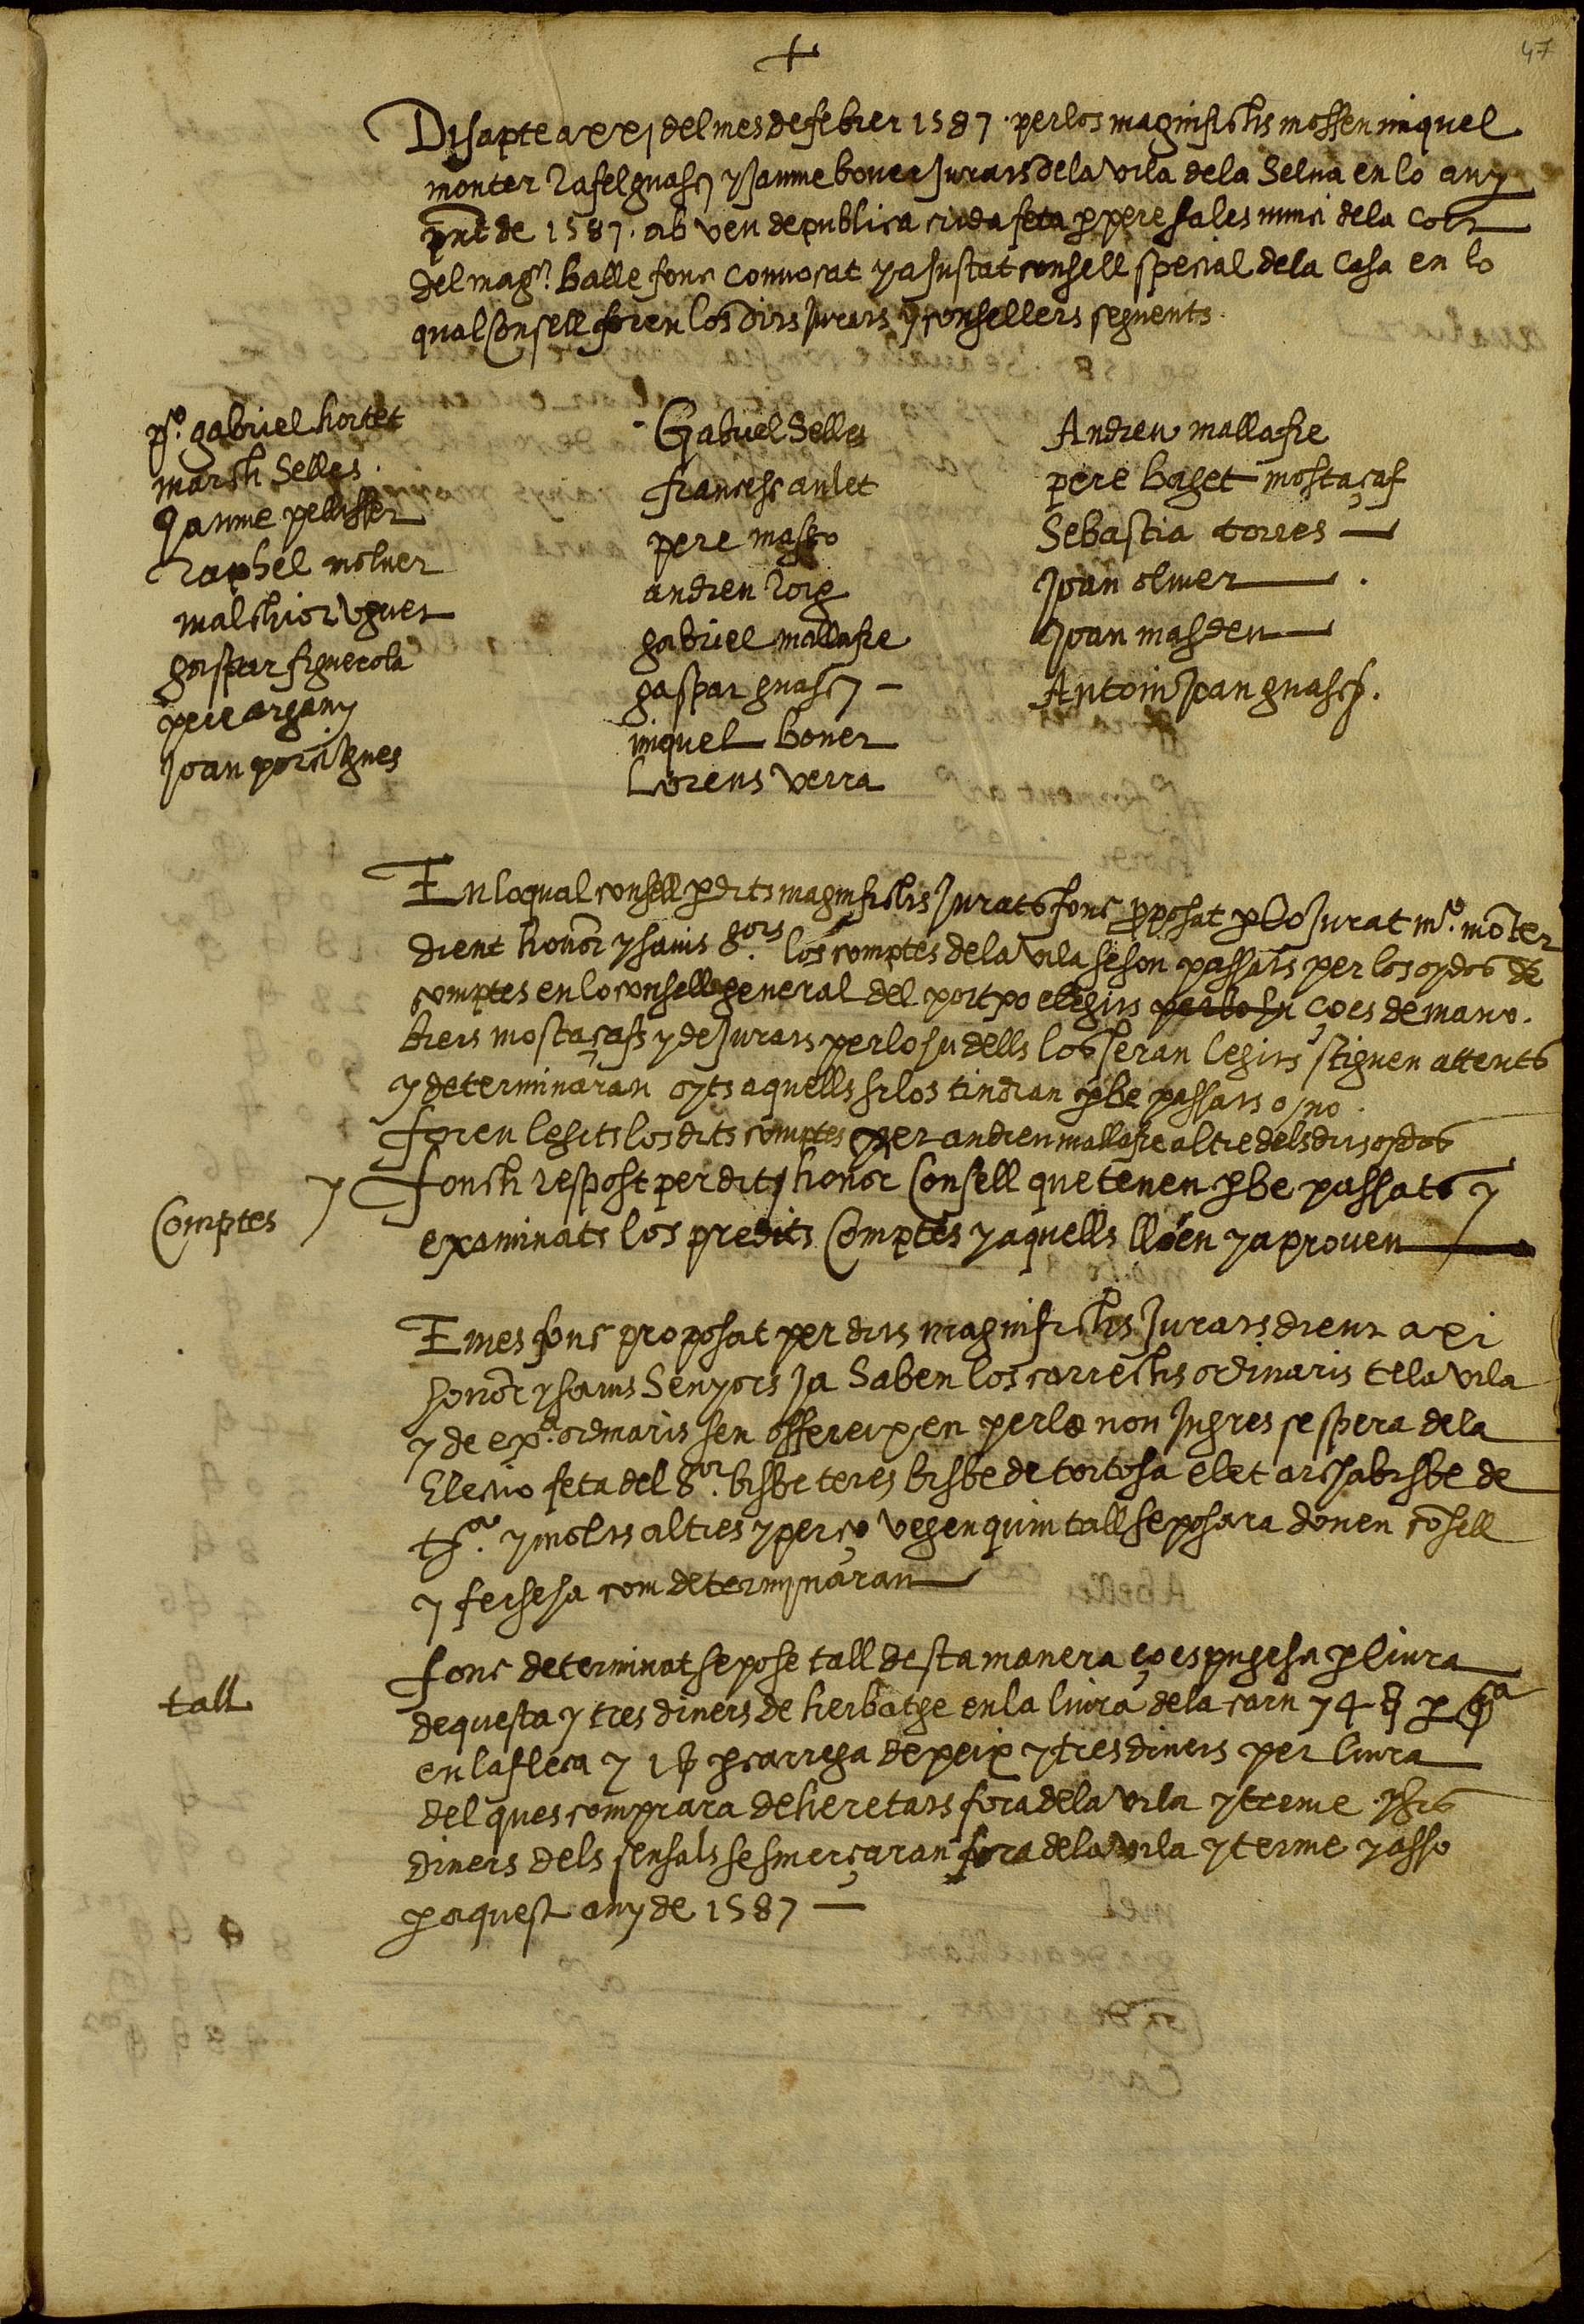 47
+
Disapte a xxj del mes de febrer 1587 · per los magnifichs mossen miquel
monter Rafel guasch y Jaume bover Jurats de la vila de la Selva en lo any
pnt de 1587 · ab veu de publica crida feta p pere sales nunci de la Cort
del magch. balle fonc convocat y aJustat consell special de la Casa en lo
qual Consell foren los dits Jurats y consellers seguents
po. gabriel hortet
march Selles
Jaume pellisser
Raphel molner
malchior oguer
gaspar figuerola
pere argany
Joan porcigues
Gabriel Selles
francesc aulet
pere masso
andreu Roig
gabriel mallafre
gaspar guasch
miquel bover
Lorens verra
Andreu mallafre
pere baget mostaçaf
Sebastia torres
Joan oliver
Joan masdeu
Antoni Joan guasch.
En lo qual consell p dits magnifichs Jurats fonc pposat p lo Jurat mo. moter
dient honor. y savis Sors. los comptes de la vila se son passats per los oydos de
comptes en lo consell general del port po elegits per lo su ço es de mano.
brers mostaçafs y de Jurats per lo su dells los seran legits stiguen attents
y determinaran oyts aquells si los tindran p be passats o no.
foren legits los dits comptes per andreu mallafre altre dels dits oydos
Comptes
y fonch respost per dit honor Consell que tenen p be passats y
examinats los predits Comptes y aquells lloen y aproven
E mes fonc proposat per dits magnifichs Jurats dient axi
honor y savis Senyors Ja Saben los carrechs ordinaris te la vila
y de exa. ordinaris sen offereixen per lo non Ingres se spera de la
Electio feta del Sor. bisbe teres bisbe de tortosa elet archabisbe de
tga. y molts altres y perço vegen quin tall se posara donen cosell
y fersesa com determinaran
tall
fonc determinat se pose tall desta manera ço es pugesa p liura
de questa y tres diners de herbatge en la liura de la carn y 4 ß p qa
en la fleca y 1 ß p carrega de peix y tres diners per liura
del ques comprara de heretats fora de la vila y terme y tres
diners dels sensals se smerçaran fora de la vila y terme y asso
p aquest any de 1587